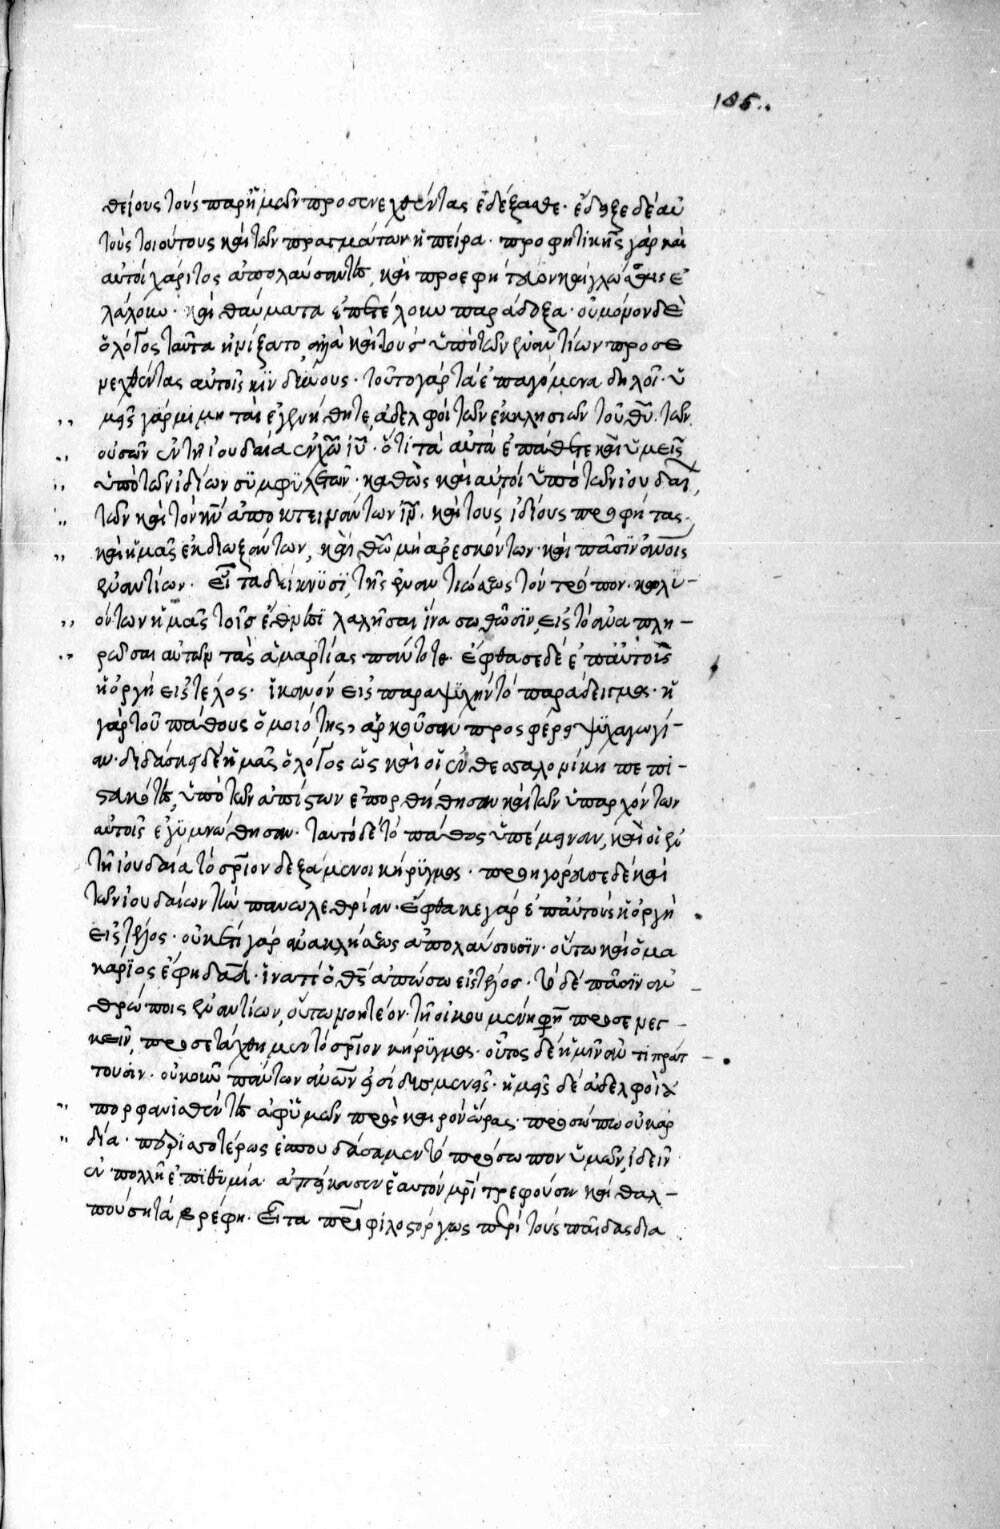 186..
θείους τοὺς παρ' ἡμῶν προσενεχθέντας ἐδέξασθε· ἔδειξε δὲ αὐ
τοὺς τοιούτους καὶ τῶν πραγμάτων ἡ πεῖρα· προφητικῆς γὰρ καὶ
αὐτοὶ χάριτος ἀπολαύσαντες, καὶ προεφήτευον καὶ γλώσσαις ἐ
λάλουν· καὶ θαύματα ἐπετέλουν παράδοξα· οὐ μόνον δὲ
ὁ λόγος ταῦτα ᾐνίξατο, ἀλλὰ καὶ τοὺς ὑπὸ τῶν ἐναντίων προσε
νεχθέντας αὐτοῖς κινδύνους· τοῦτο γὰρ τὰ ἐπαγόμενα δηλοῖ· ὑ
μεῖς γὰρ μιμηταὶ ἐγενήθητε, ἀδελφοὶ τῶν ἐκκλησιῶν τοῦ θῦ· τῶν
οὐσῶν ἐν τῇ ἰουδαία ἐν χῶ ἰῦ· ὅτι τὰ αὐτὰ ἐπάθετε καὶ ὑμεῖς
ὑπὸ τῶν ἰδίων συμφυλετῶν· καθὼς καὶ αὐτοὶ ὑπὸ τῶν ἰουδαί
των καὶ τὸν κν ἀποκτεινάντων ἰν, καὶ τοὺς ἰδίους προφήτας,
καὶ ἡμᾶς ἐκδιωξάντων, καὶ θῶ μὴ ἀρεσκόντων· καὶ πᾶσιν ἀνοις
ἐναντίων· εἶτα δείκνυσι, τῆς ἐναντιώσεως τὸν τρόπον· κωλυ-
όντων ἡμᾶς τοῖς ἔθνεσι λαλῆσαι ἵνα σωθῶσιν, εἰς τὸ ἀναπλη-
ρῶσαι αὐτῶν τὰς ἁμαρτίας πάντοτε· ἔφθασε δὲ ἐπ' αὐτοὺς
ἡ ὀργὴ εἰς τέλος· ἱκανὸν εἰς παραψυχὴν τὸ παράδειγμα· ἡ
γὰρ τοῦ πάθους ὁμοιότης, ἀρκοῦσαν προσφέρει ψυχαγωγί-
αν· διδάσκει δὲ ἡμᾶς ὁ λόγος ὡς καὶ οἱ ἐν θεσσαλονίκη πεπι-
στευκότες, ὑπὸ τῶν ἀπίστων ἐπορθήθησαν καὶ τῶν ὑπαρχόντων
αὐτοῖς ἐγυμνώθησαν· ταυτὸ δὲ τὸ πάθος ὑπέμειναν, καὶ οἱ ἐν
τῆ ἰουδαία τὸ σριον δεξάμενοι κήρυγμα· προηγόρευσε δὲ καὶ
τῶν ἰουδαίων τὴν πανωλεθρίαν· ἔφθακε γὰρ ἐπ' αὐτοὺς ἡ ὀργὴ
εἰς τέλος· οὐκέτι γὰρ ἀνακλήσεως ἀπολαύσουσιν· οὕτω καὶ ὁ μα
κάριος ἔφη δαδ· ἱνατί ὁ θς ἀπώσω εἰς τέλος· τὸ δὲ πᾶσιν ἀν
θρώποις ἐναντίων, οὕτω νοητέον· τῆ οἰκουμένη προσενεγ-
κεῖν, προσετάχθημεν τὸ σριον κήρυγμα· οὗτος δὲ ἡμῖν ἀντιπράτ
τουσιν· οὐκοῦν πάντων ἀνων εἰσὶ δυσμενεῖς· ἡμεῖς δὲ ἀδελφοὶ ἀ
πορφανισθέντες ἀφ' ὑμῶν πρὸς καιρὸν ὥρας· προσώπω οὐ καρ
δία· περισσοτέρως ἐσπουδάσαμεν τὸ πρόσωπον ὑμῶν, ἰδεῖν
ἐν πολλῆ ἐπιθυμία ἀπείκασεν ἑαυτὸν μρὶ τρεφούση καὶ θαλ-
πούση τὰ βρέφη· εἶτα πρὶ φιλοστόργως περὶ τοὺς παῖδας δια